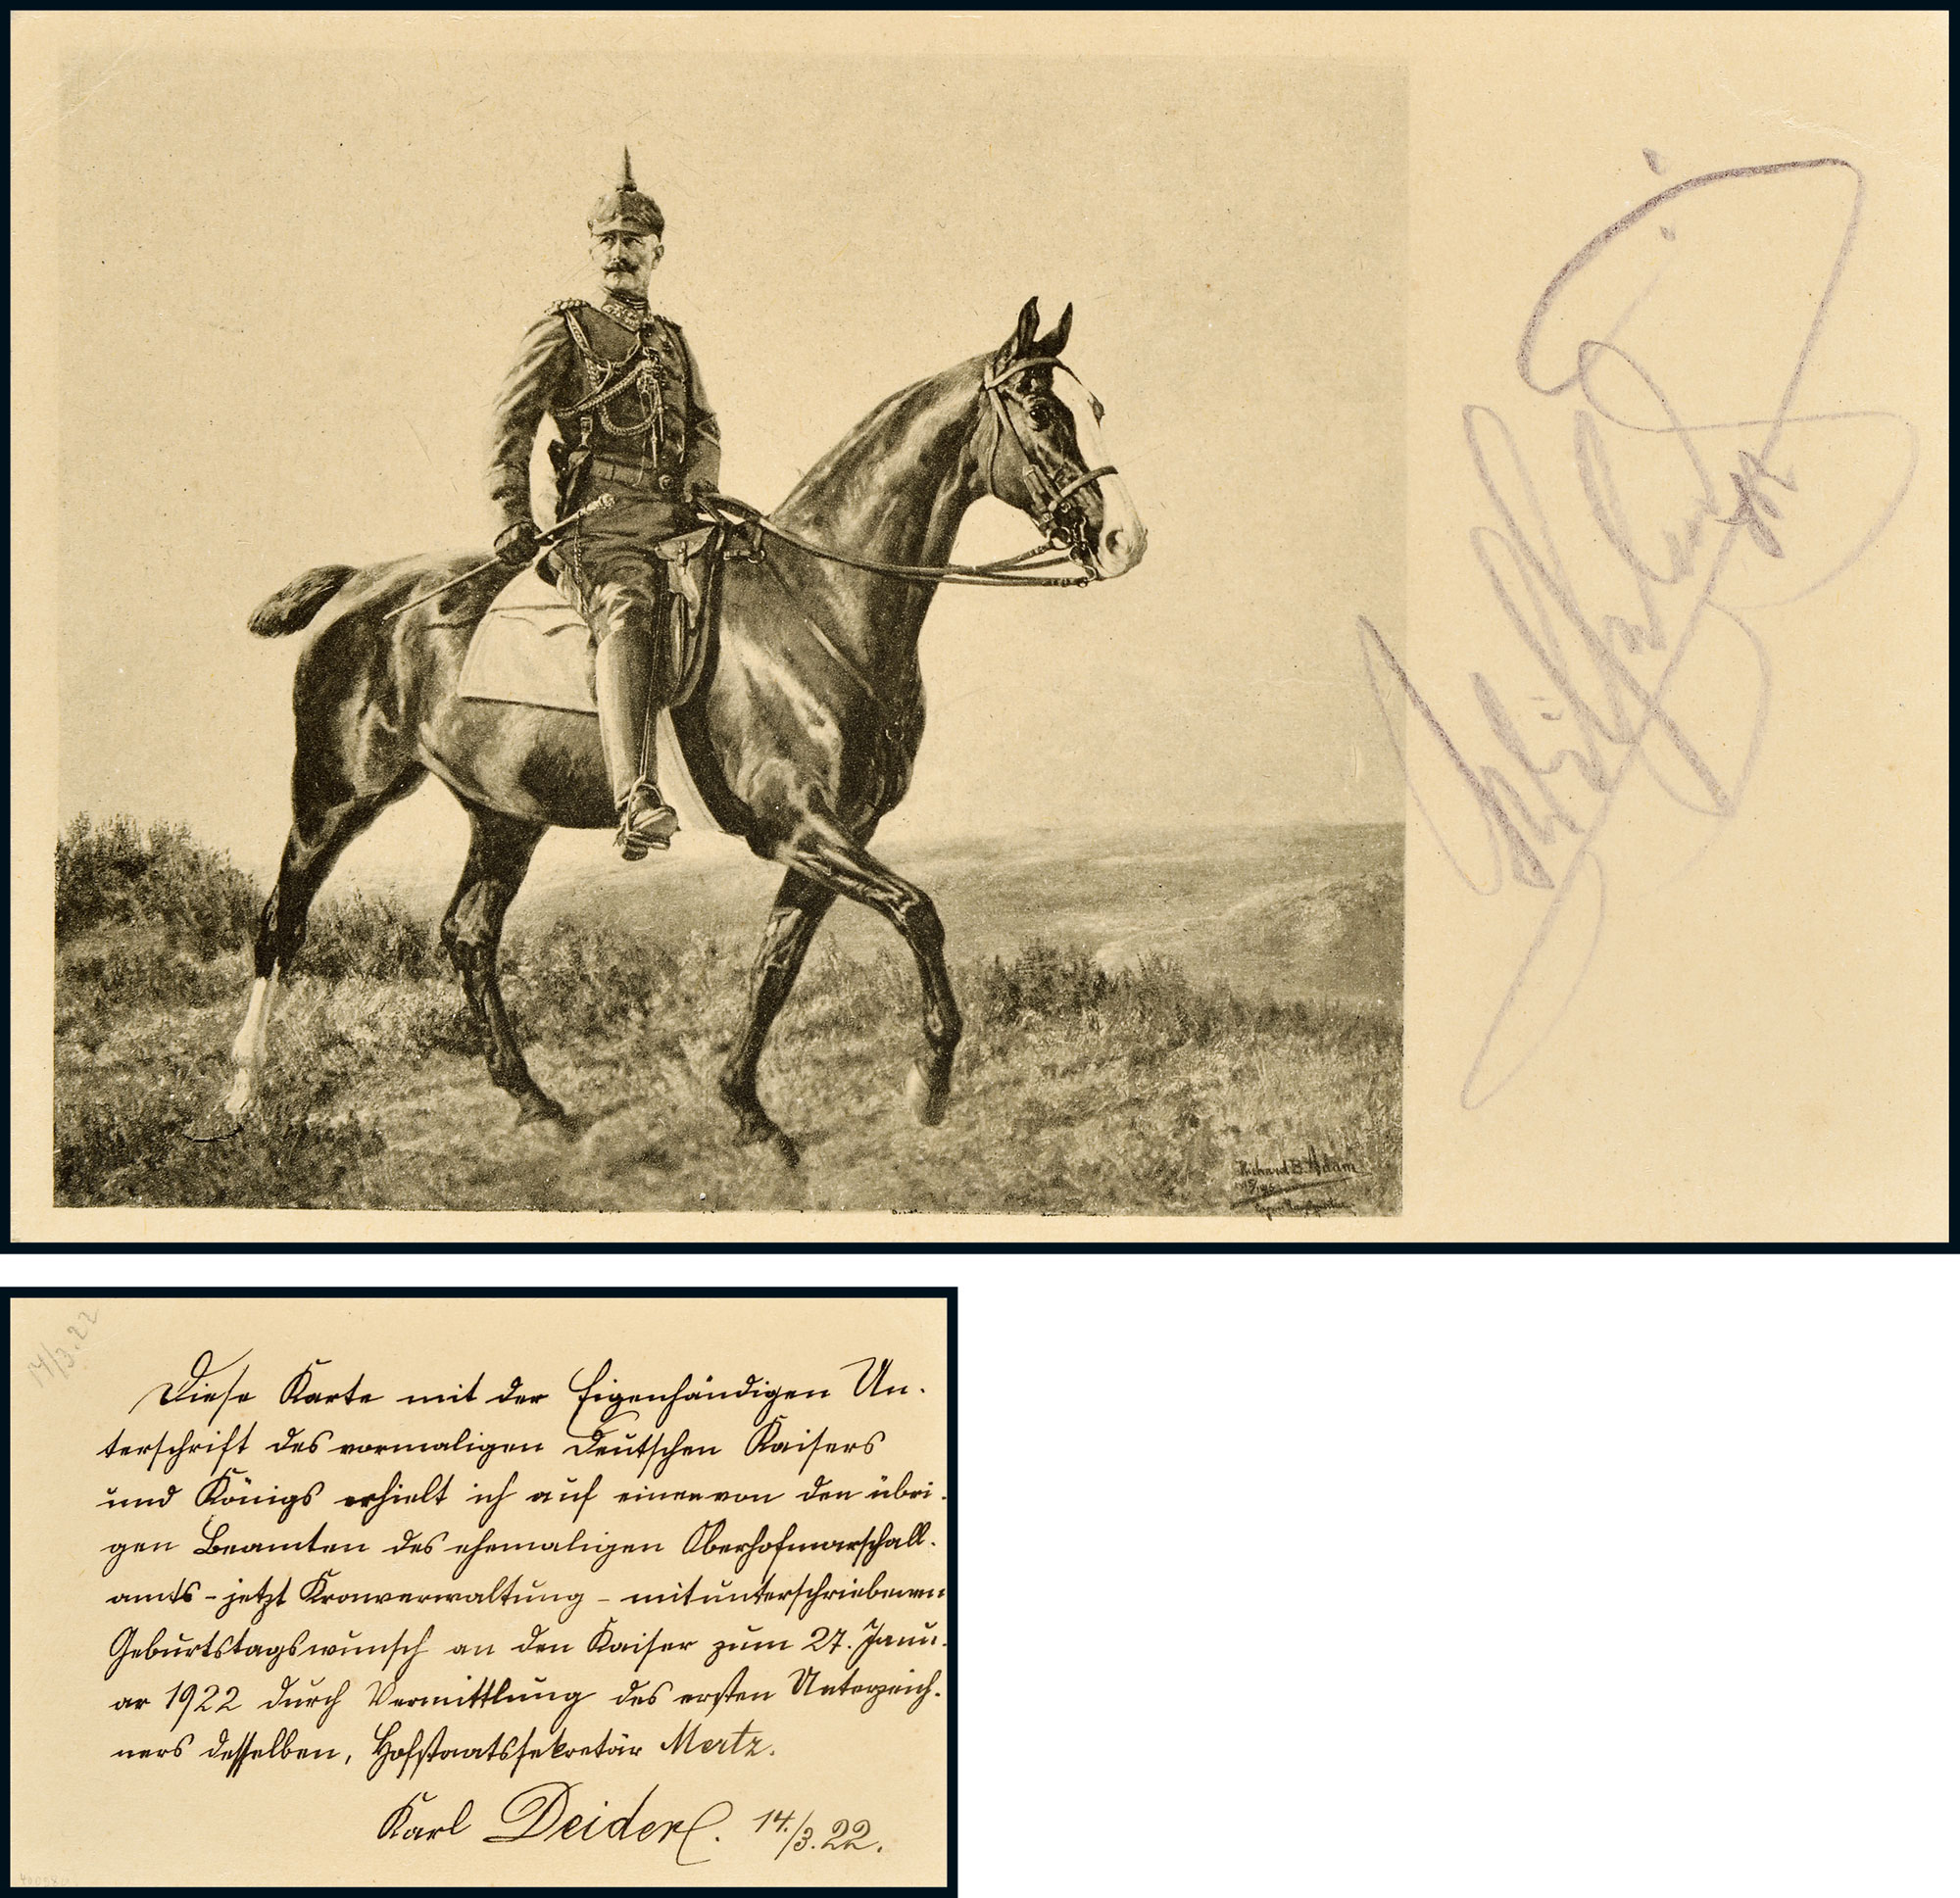 Wilhelm
Richard B. Adam
14/3.22
Diese Karte mit der Eigenhändigen Un-
terschrift des vormaligen Deutschen Kaisers
und Königs erhielt ich auf einen von den übri-
gen Beamten des ehemaligen Oberhofmarschall-
amts - jetzt Kronverwaltung - mitunterschriebenen
Geburtstagswunsch an den Kaiser zum 27. Janu-
ar 1922 durch Vermittlung des ersten Unterzeich-
ners desselben, Hofstaatssekretär Mertz.
Karl Deiderl. 14./3.22.